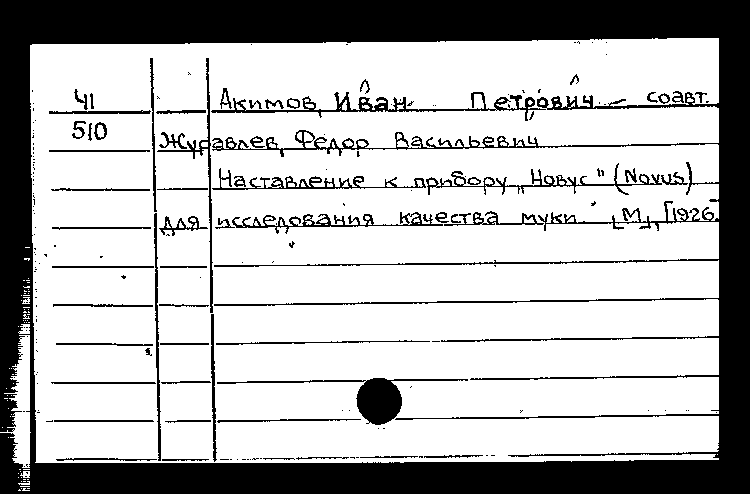 41 Акимов, Иван Петрович – соавт.
510 Журавлев, Федор Васильевич
Наставление к прибору „Новус" (Novus)
для исследования качества муки. [М], [1926